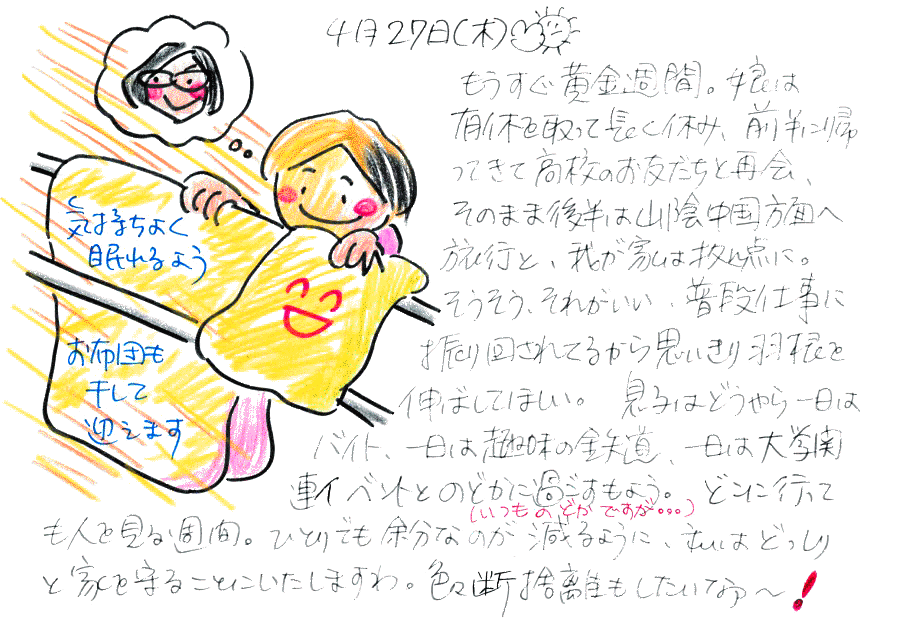 4月27日(木)
もうすぐ黄金週間。娘は
有休を取って長く休み、前半に帰
ってきて高校のお友だちと再会、
そのまま後半は山陰中国方面へ
旅行と、我が家は拠点に。
そうそう、それがいい、普段仕事に
振り回されてるから思いきり羽根を
伸ばしてほしい。息子はどうやら一日は
バイト、一日は趣味の鉄道、一日は大学関
連イベントとのどかに過ごすもよう。どこに行って
(いつものどかですが・・・)
も人を見る週間。ひとりでも余分なのが減るように、私はどっしり
と家を守ることにいたしますわ。色々断捨離もしたいなぁ〜!
気持ちよく
眠れるよう
お布団も
干して
迎えます